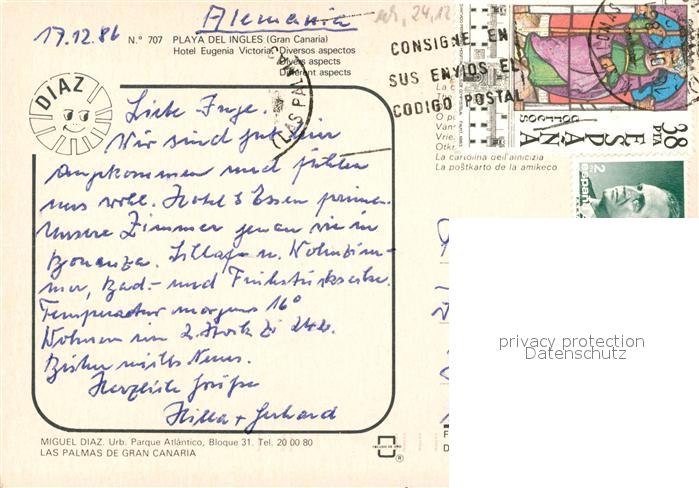 17.12.86
Alemania
N.º 707 PLAYA DEL INGLES (Gran Canaria)
Hotel Eugenia Victoria. Diversos aspectos
Divers aspects
Different aspects
DIAZ
CONSIGNE EN
SUS ENVIOS EL
CODIGO POSTAL
(LAS PALMAS
ESPAÑA
38 PTA
CORREOS
2
españa
La cartolina dell'amicizia
La poŝtkarto de la amikeco
Liebe Inge.
Wir sind gut hier
angekommen und fühlen
uns wohl. Hotel & Essen prima.
Unsere Zimmer genau wie in
Bonanza. Schlafz. u. Wohnzim-
mer, Bad- und Frühstücksecke.
Temperatur morgens 16°
Wohnen im 2. Stock Zi 242.
Bisher nichts Neues.
Herzliche Grüße
Hilla + Gerhard
MIGUEL DIAZ. Urb. Parque Atlántico, Bloque 31. Tel. 20 00 80
LAS PALMAS DE GRAN CANARIA
privacy protection
Datenschutz